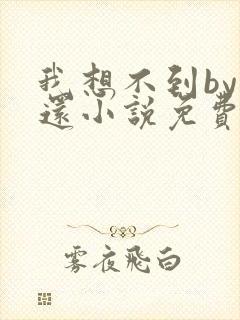 我想不到by
還小說免費
雾夜飛白